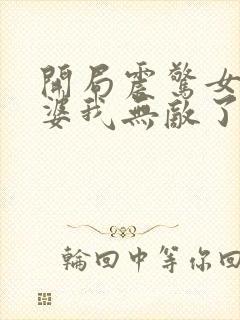 開局震驚女
婆我無敵了
輪回中等你回